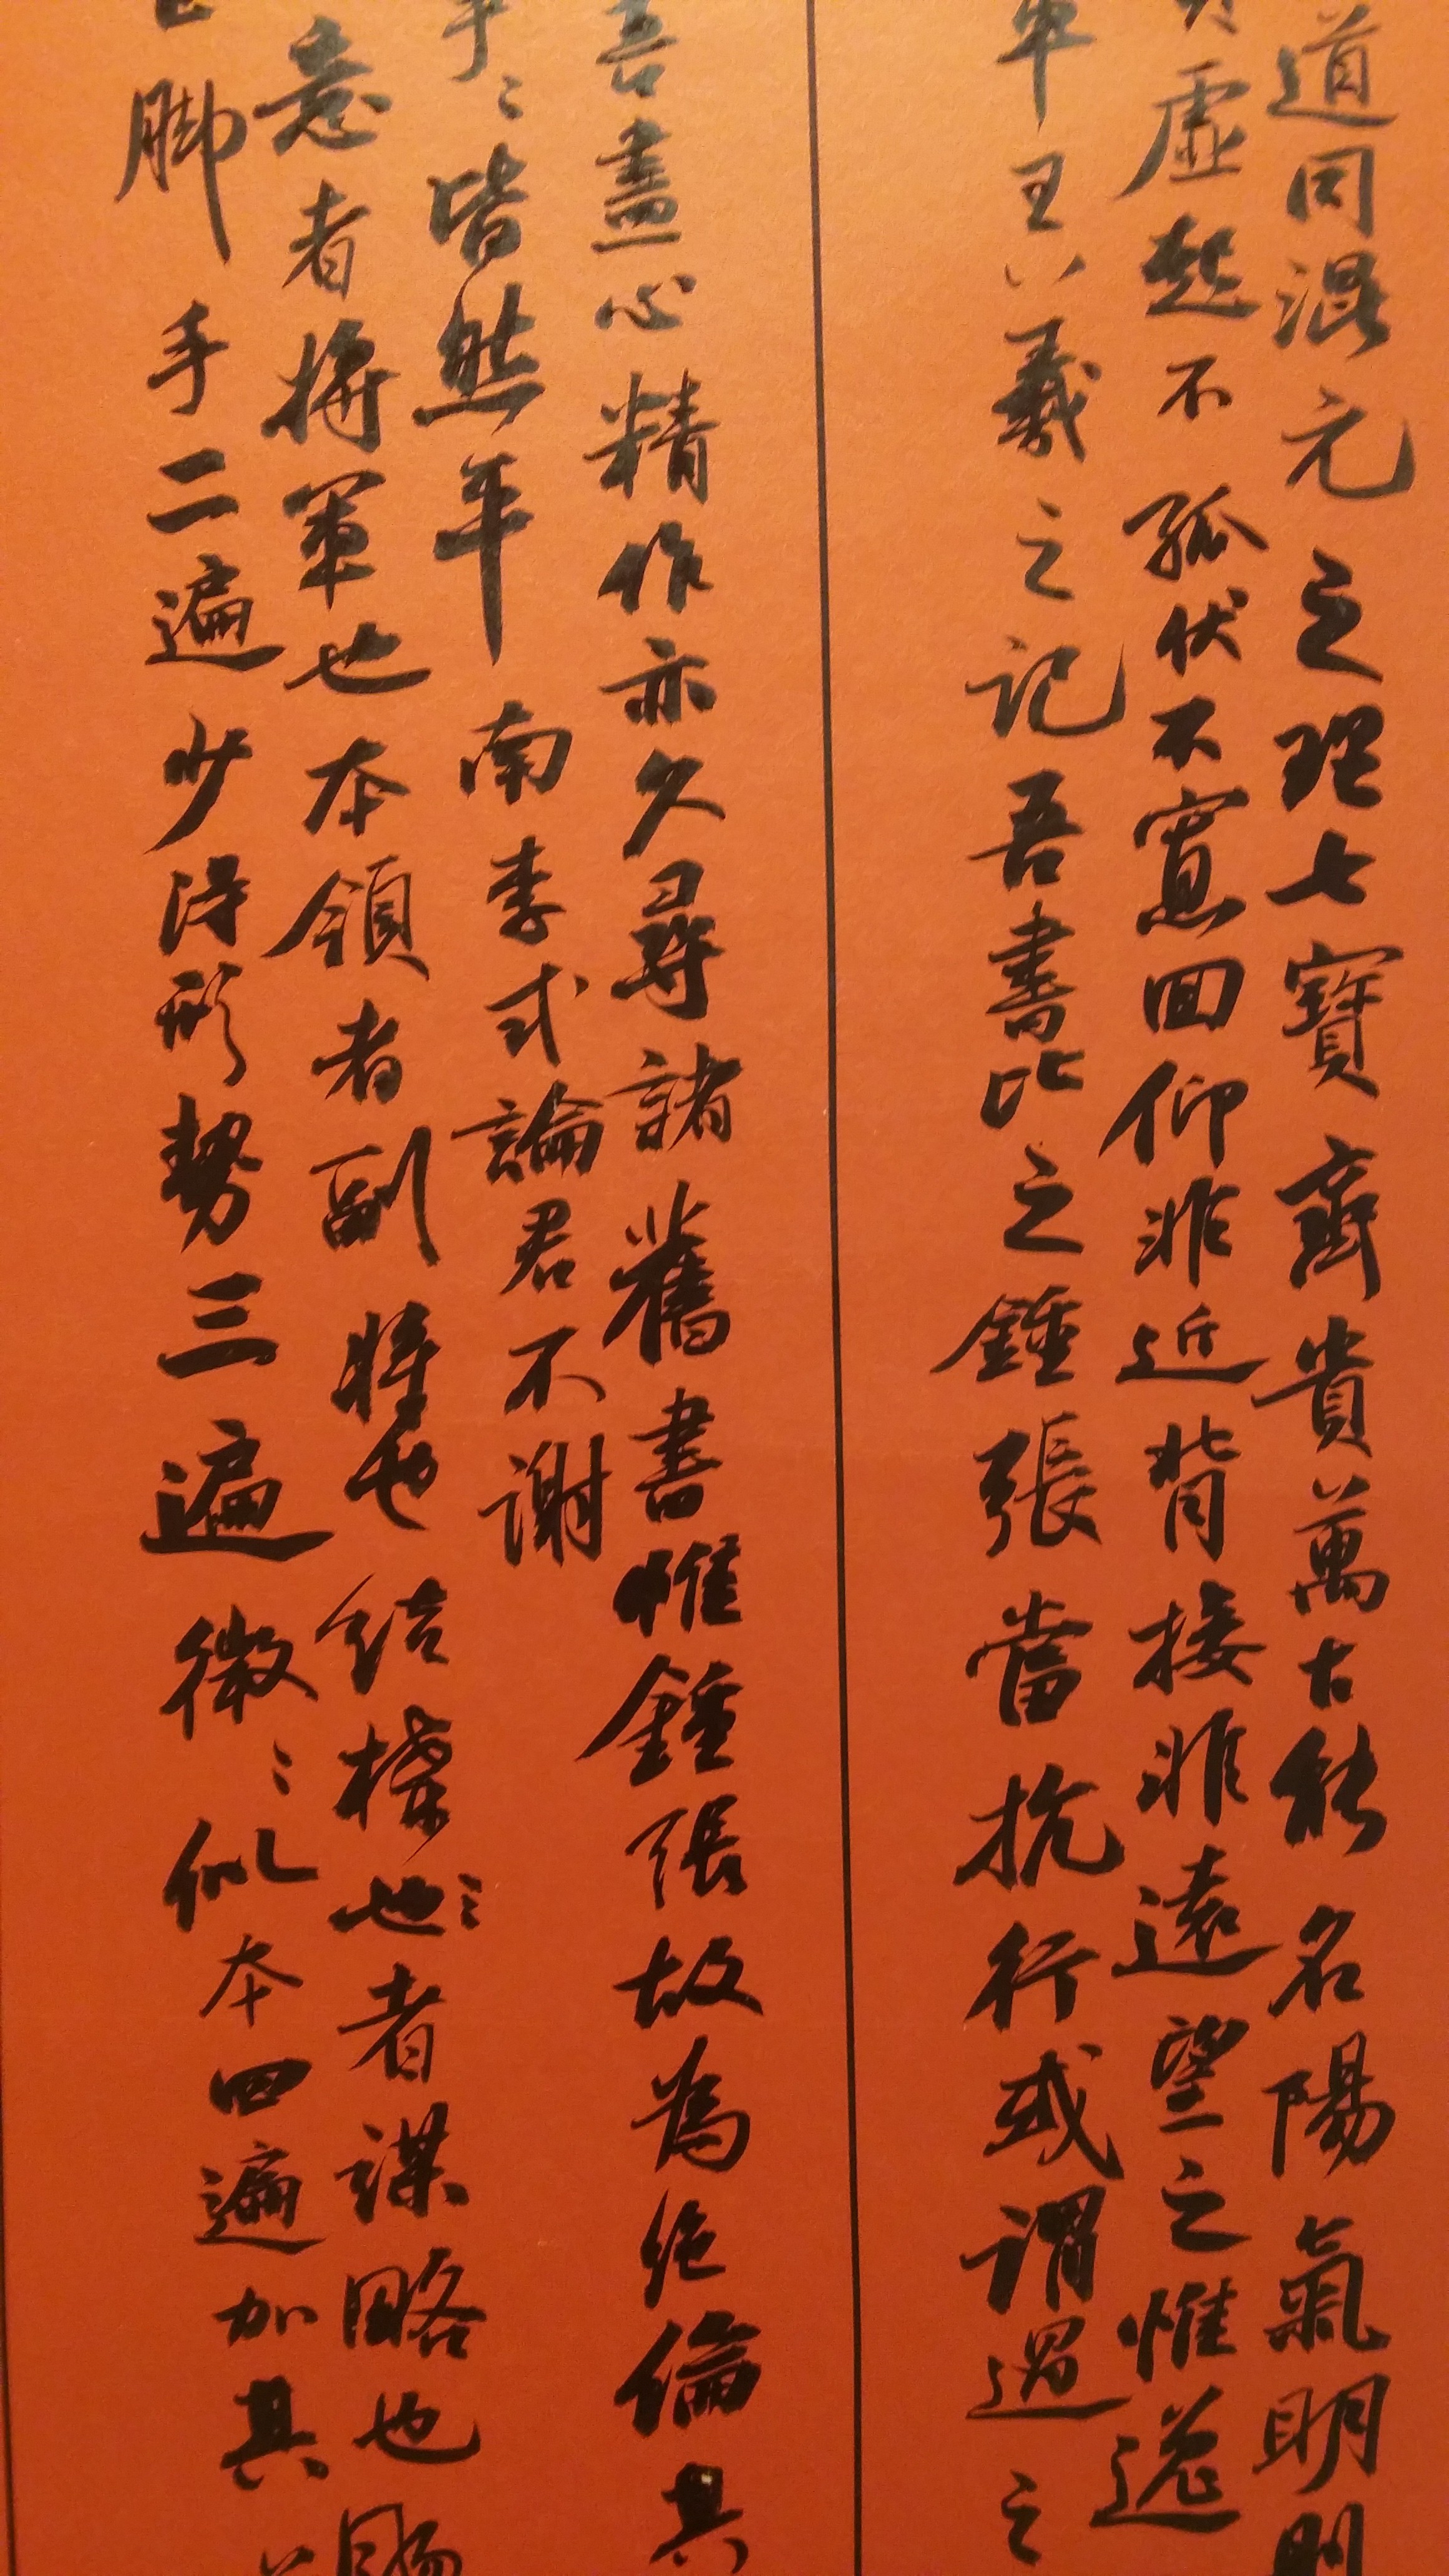 道同混元之理七寶齊貴萬古能名陽氣明
虛起不孤伏不寡回仰非近背接非遠望之惟逸
王羲之記吾書比之鍾張當抗行或謂過之
吾盡心精作亦久尋諸舊書惟鍾張故為絕倫其
手〻皆然平南李式論君不謝
意者將軍也本領者副將也結構也〻者謀略也
脚手二遍少得形勢三遍微〻似本四遍加其